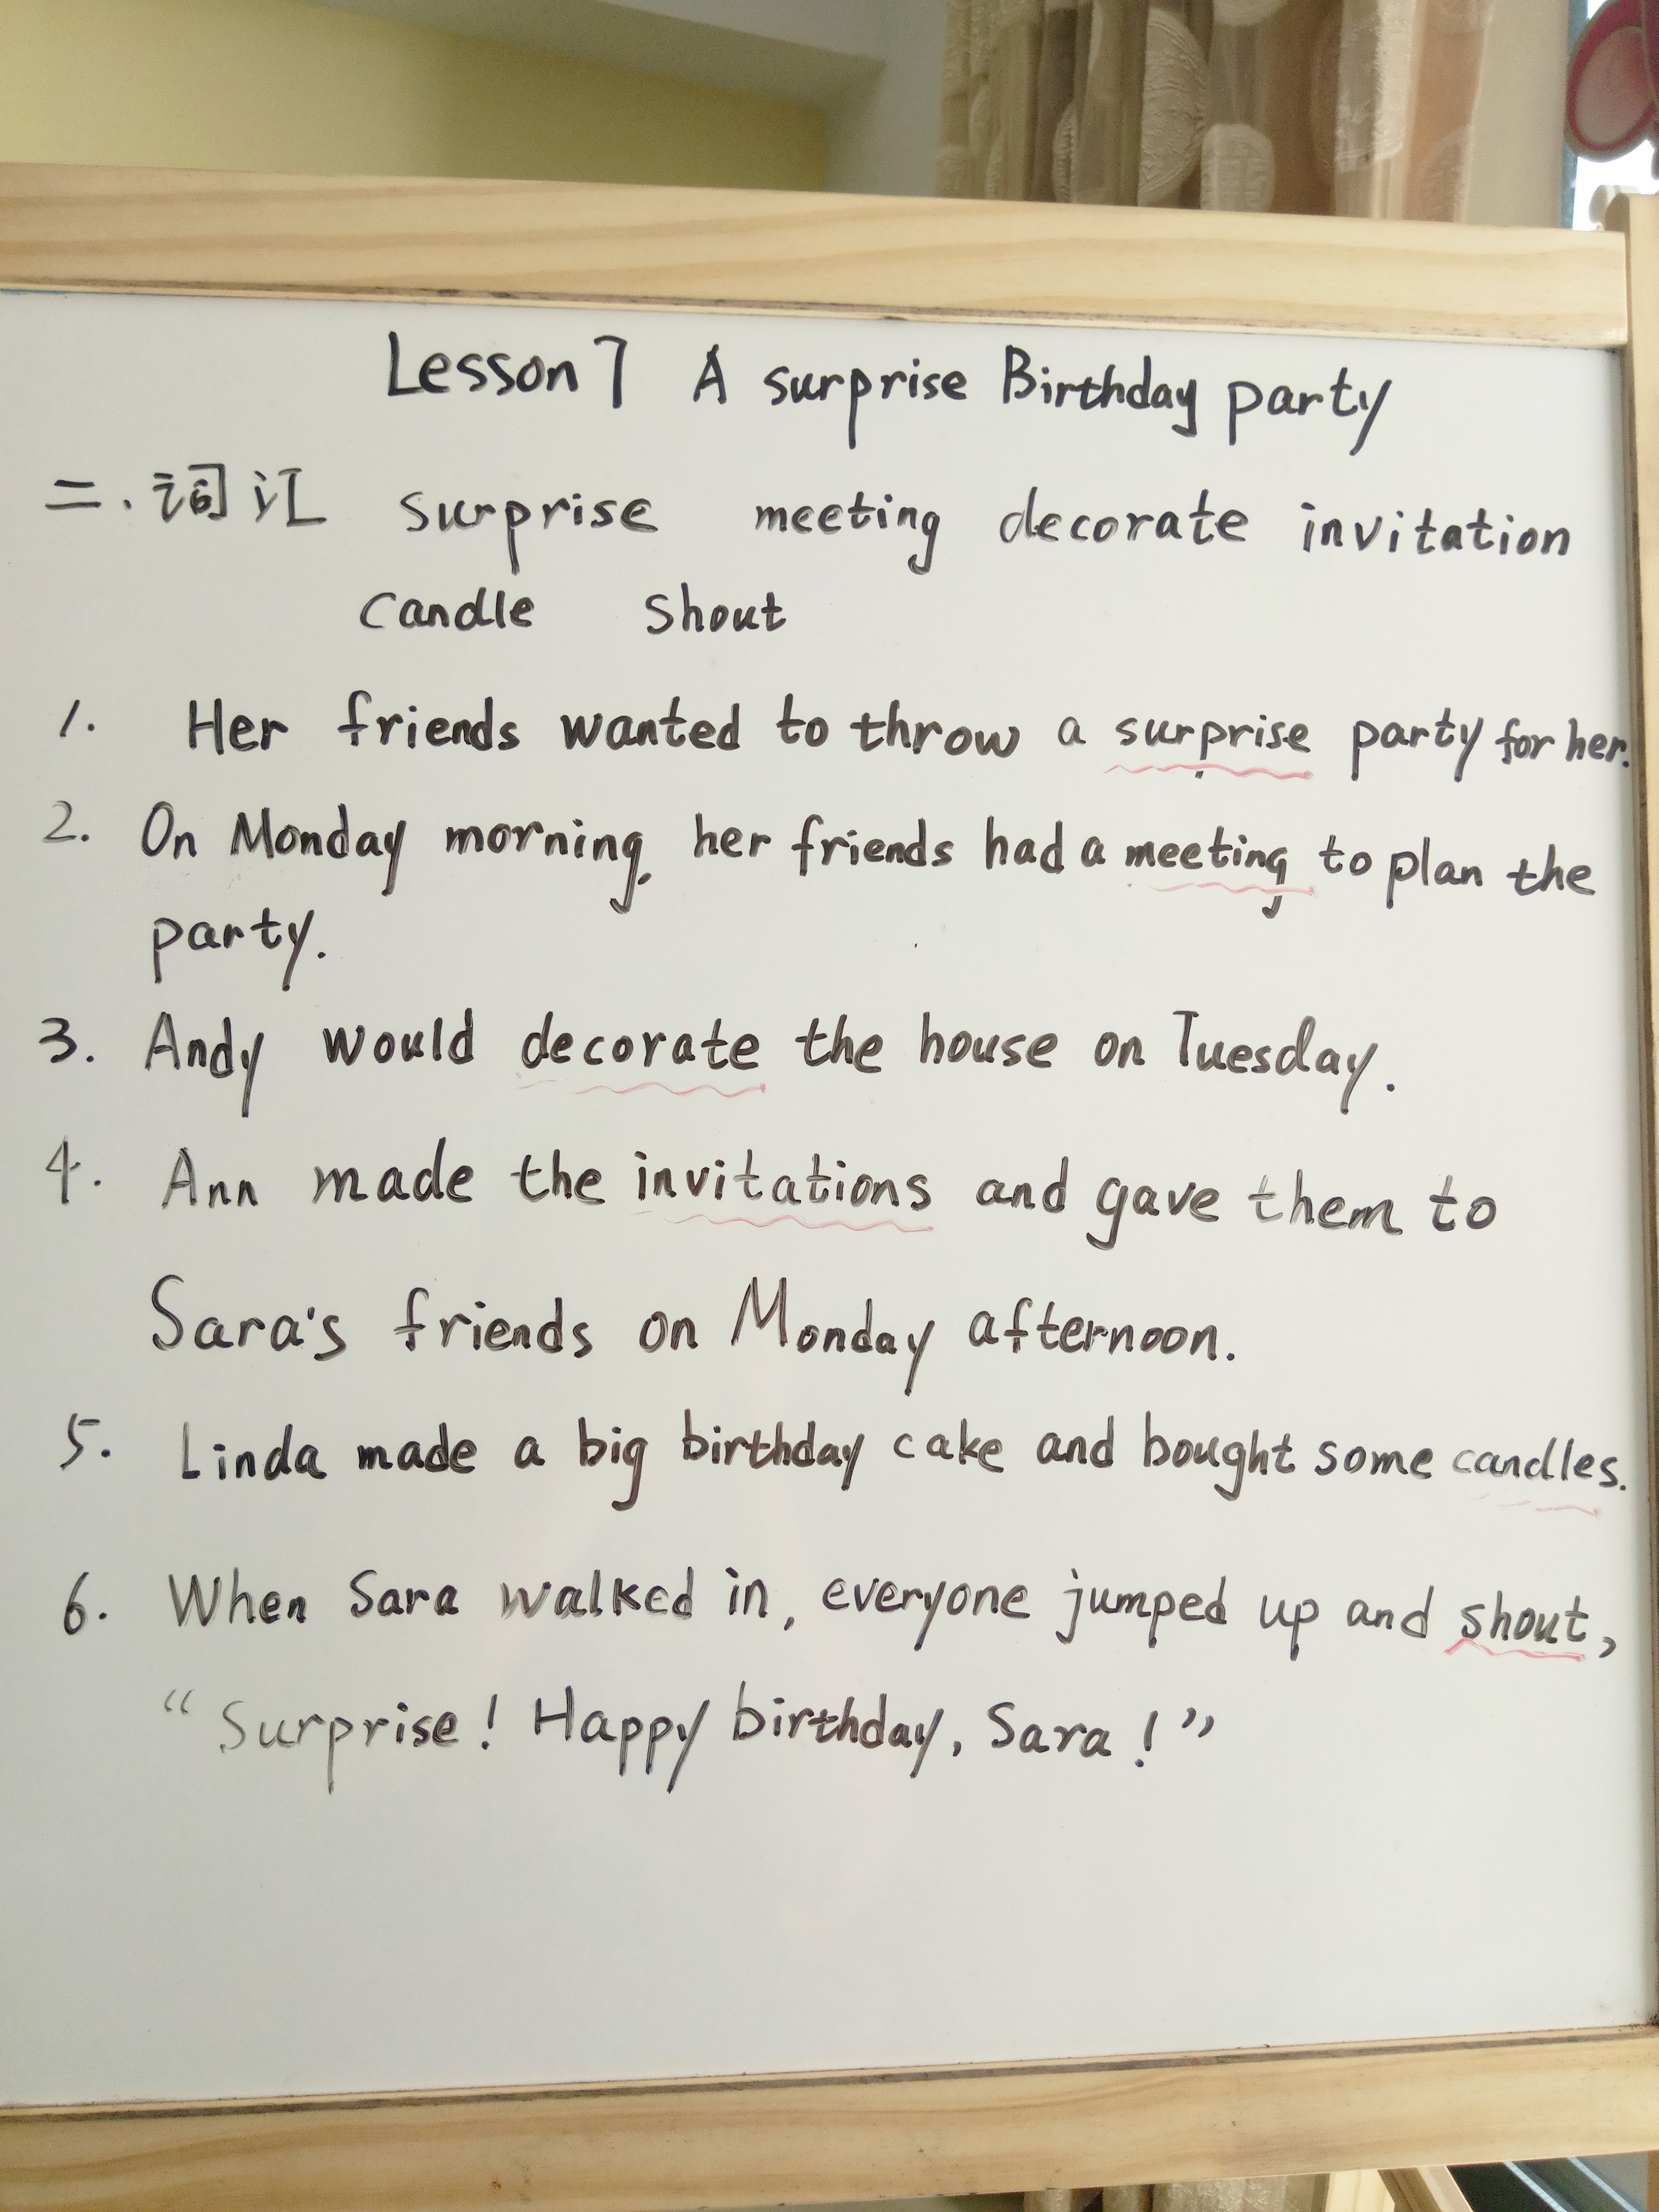 Lesson 7 A surprise Birthday party
二.词汇 surprise meeting decorate invitation
candle shout
1. Her friends wanted to throw a surprise party for her.
2. On Monday morning, her friends had a meeting to plan the
party.
3. Andy would decorate the house on Tuesday.
4. Ann made the invitations and gave them to
Sara's friends on Monday afternoon.
5. Linda made a big birthday cake and bought some candles.
6. When Sara walked in, everyone jumped up and shout,
“Surprise! Happy birthday, Sara!”